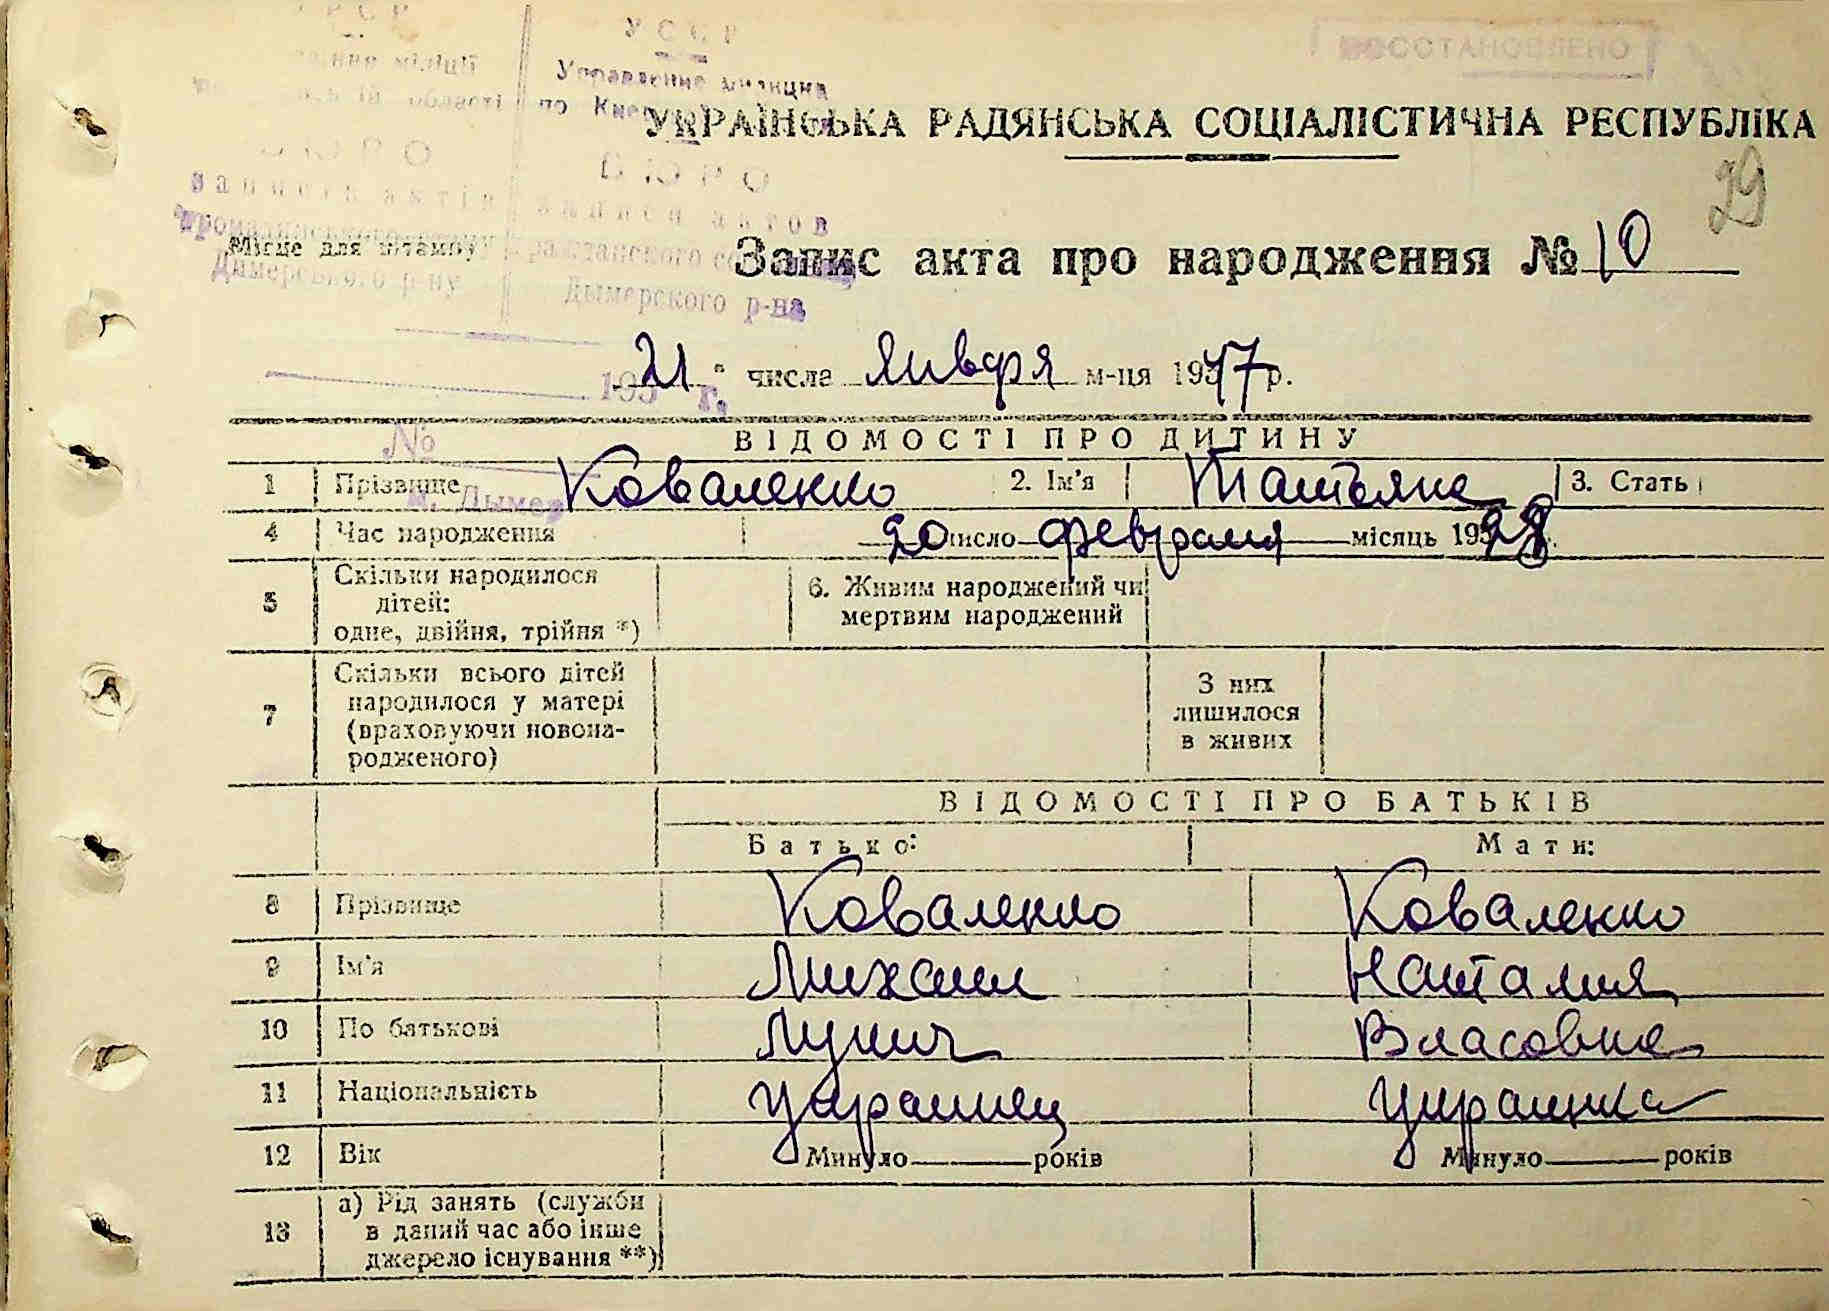 УССР
ВОССТАНОВЛЕНО
Управление милиции
області
по
УКРАЇНСЬКА РАДЯНСЬКА СОЦІАЛІСТИЧНА РЕСПУБЛІКА
БЮРО
29
записи актов
Місце для штампу
Запис акта про народження № 10
Димерського р-ну
Дымерского р-на
21 " числа января м-ця 1957 р.
195 г.
№
ВІДОМОСТІ ПРО ДИТИНУ
1 Прізвище Коваленко 2. Ім'я Татьяна 3. Стать
4 Час народження 20 число февраля місяць 1928
5 Скільки народилося дітей: одне, двійня, трійня *)
6. Живим народжений чи мертвим народжений
7 Скільки всього дітей народилося у матері (враховуючи новонародженого)
З них лишилося в живих
ВІДОМОСТІ ПРО БАТЬКІВ
Батько: Мати:
8 Прізвище Коваленко Коваленко
9 Ім'я Михаил Наталия
10 По батькові Лукич Власовна
11 Національність украинец украинка
12 Вік Минуло років Минуло років
13 а) Рід занять (служби в даний час або інше джерело існування **)